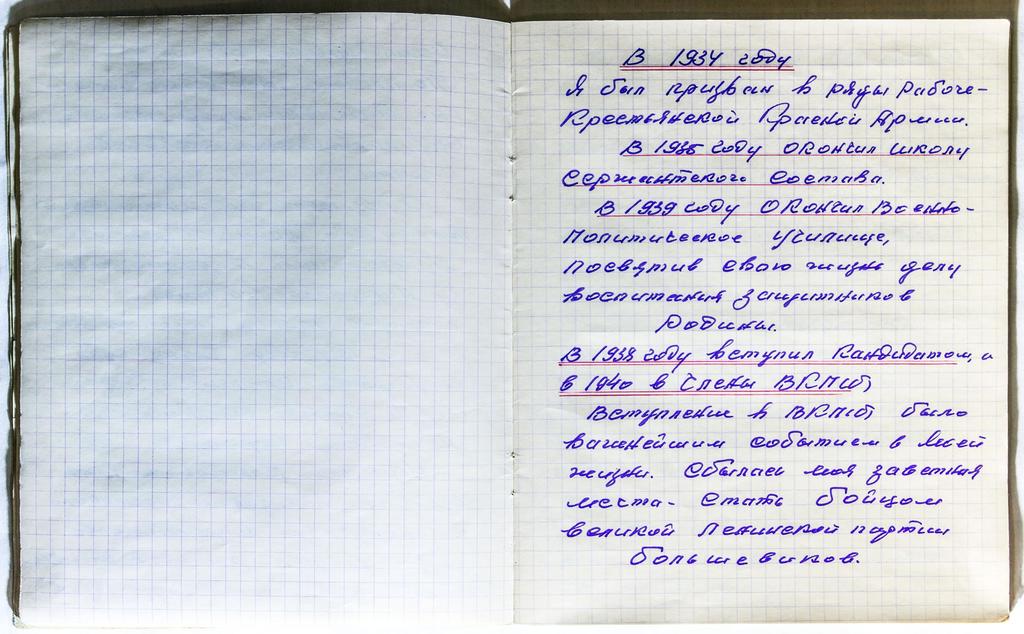 В 1934 году
Я был призван в ряды рабоче-
Крестьянской Красной Армии.
В 1935 году окончил школу
Сержантского Состава.
В 1939 году окончил Военно-
Политическое училище,
посвятив свою жизнь делу
воспитания защитников
Родины.
В 1938 году вступил Кандидатом, а
в 1940 в Члены ВКП(б)
Вступление в ВКП(б) было
важнейшим событием в моей
жизни. Сбылась моя заветная
мечта - стать бойцом
великой Ленинской партии
большевиков.